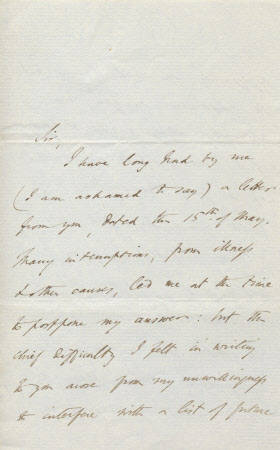 Sir,
I have long had by me
(I am ashamed to say) a letter
from you, dated the 15th of May.
Many interruptions, from illness
& other causes, led me at the time
to postpone my answer: but the
chief difficulty I felt in writing
to you arose from my unwillingness
to interfere with a list of future